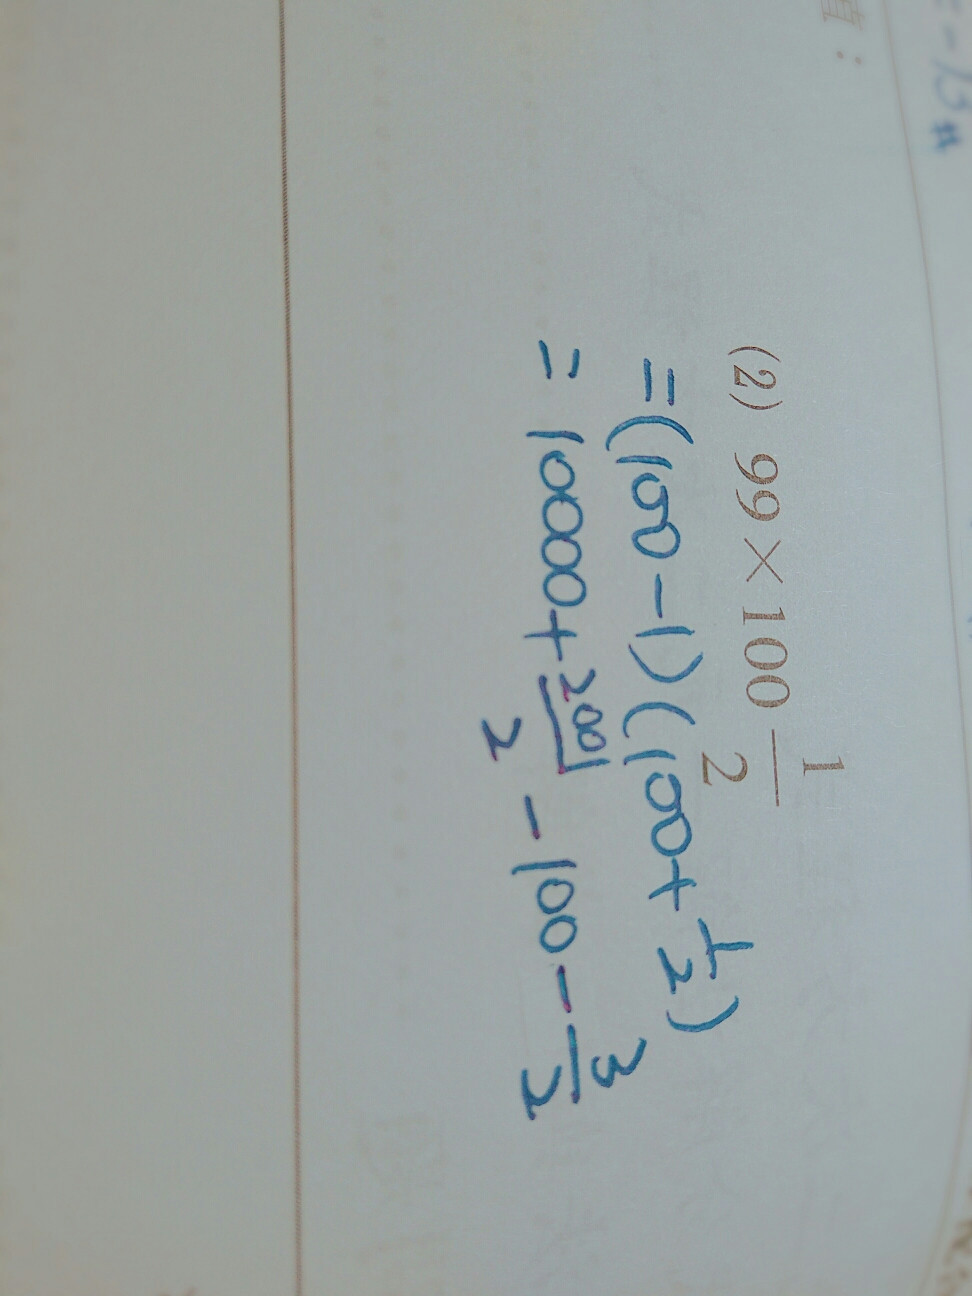 = -13 #
值：
(2) 99 × 100 1/2
= (100 - 1) (100 + 1/2)
= 10000 + 2001/2 - 100 - 3/2